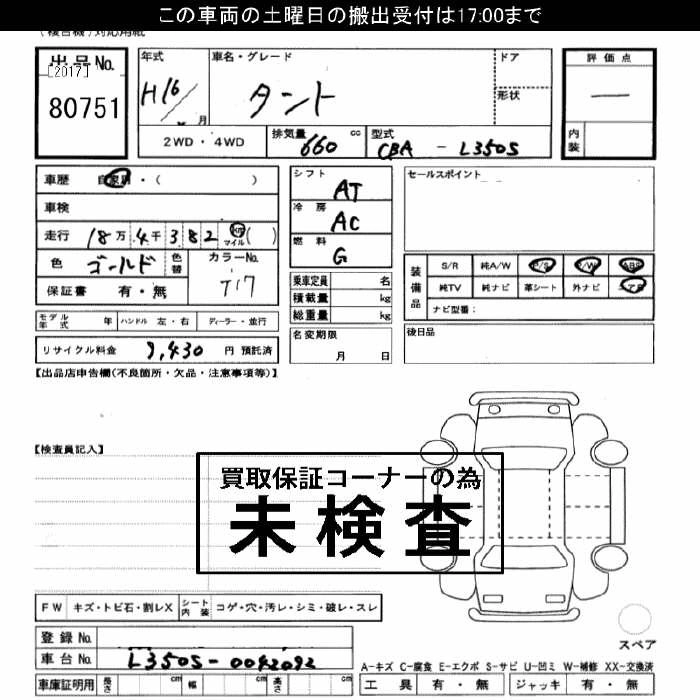 この車両の土曜日の搬出受付は17:00まで
(複合機)対応用紙
出品No.
[2017]
80751
年式
H16
月
車名・グレード
タント
ドア
形状
評価点
―
内装
2WD・4WD
排気量 660 cc
型式 CBA - L350S
車歴 自家用・( )
車検
走行 18万4千382 km マイル ( )
色 ゴールド 色替
カラーNo.
T17
保証書 有・無
モデル年式 年 ハンドル 左・右 ディーラー・並行
リサイクル料金 9,430 円 預託済
シフト AT
冷房 AC
燃料 G
乗車定員 名
積載量 kg
総重量 kg
名変期限
月 日
セールスポイント
装備品
S/R 純A/W P/S P/W ABS
純TV 純ナビ 革シート 外ナビ エアB
ナビ型番:
後日品
【出品店申告欄(不良箇所・欠品・注意事項等)】
【検査員記入】
買取保証コーナーの為
未検査
FW キズ・トビ石・割レX シート内装 コゲ・穴・汚レ・シミ・破レ・スレ
登録No.
車台No. L350S-0042092
車庫証明用 長さ cm 幅 cm 高さ cm
スペア
A-キズ C-腐食 E-エクボ S-サビ U-凹ミ W-補修 XX-交換済
工具 有・無 ジャッキ 有・無